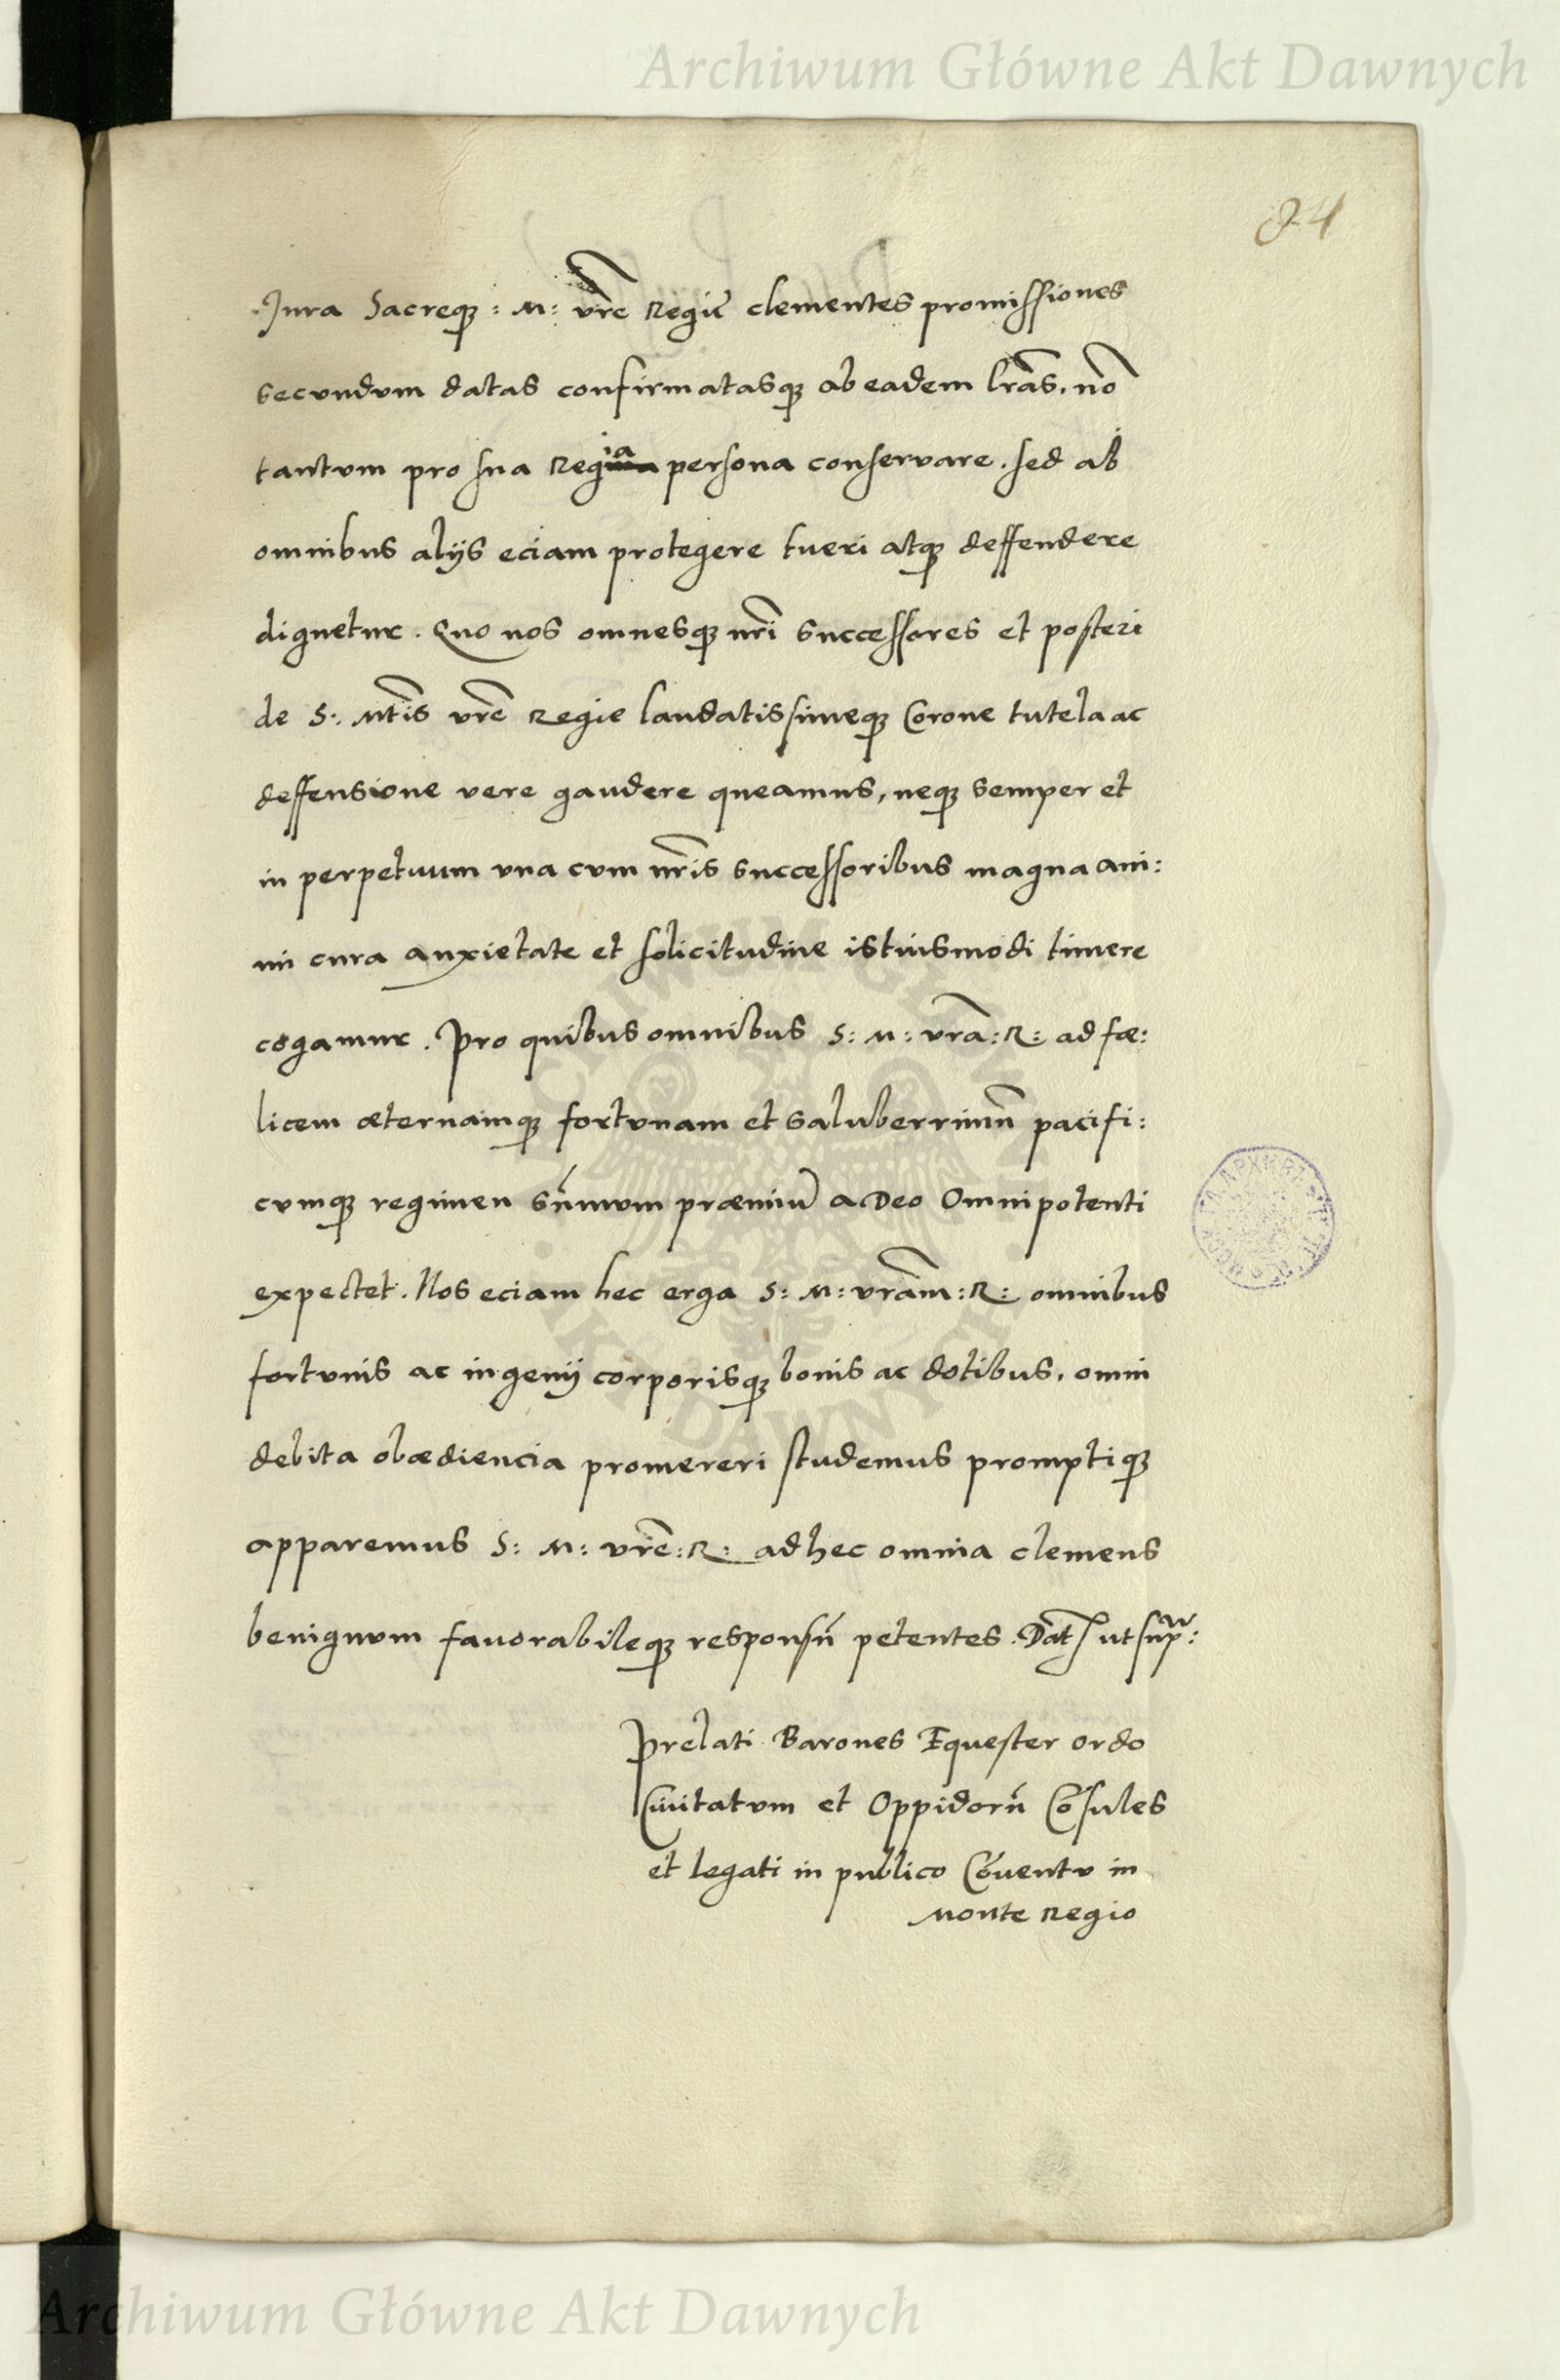 Archiwum Główne Akt Dawnych
84
Jura Sacreque : M : vrē Regiē clementes promissiones
secundum datas confirmatasque ab eadem lrās. nō
tantum pro sua Regia persona conservare. sed ab
omnibus alijs eciam protegere tueri atque deffendere
dignetur. Quo nos omnesque nrī successores et posteri
de S: Mtīs vrē Regie laudatissimeque Corone tutela ac
deffensione vere gaudere queamus, neque semper et
in perpetuum una cum nrīs successoribus magna ani:
mi cura anxietate et solicitudine istiusmodi timere
cogamur. Pro quibus omnibus S: M: vrā: R: ad fæ:
licem æternamque fortunam et saluberrimū pacifi:
cumque regimen sūmum præmiū a Deo Omnipotenti
expectet. Nos eciam hec erga S: M: vrām: R: omnibus
fortunis ac ingenij corporisque bonis ac dotibus, omni
debita obædiencia promereri studemus promptique
apparemus S: M: vrē: R: ad hec omnia clemens
benignum favorabileque responsū petentes. Dat ut sup:
Prelati Barones Equester ordo
Civitatum et Oppidorū Cōsules
et legati in publico Cōventu in
Monte Regio
AKT DAWNYCH
Archiwum Główne Akt Dawnych